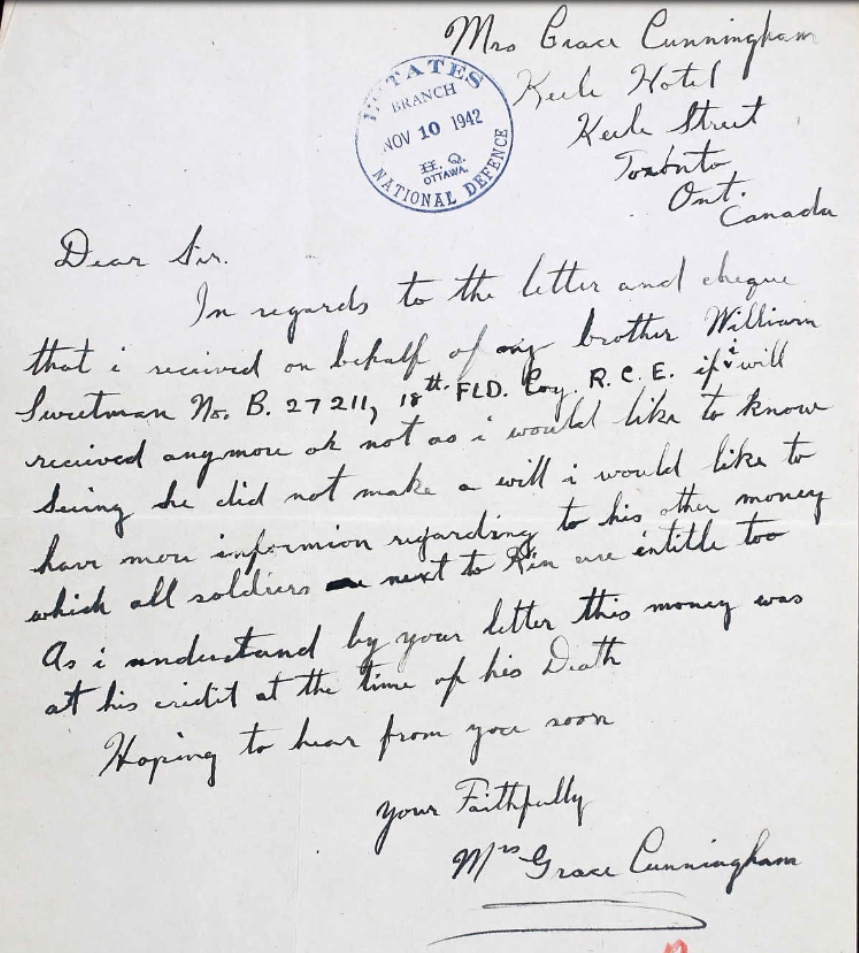 Mrs Grace Cunningham
Keele Hotel
Keele Street
Toronto
Ont.
Canada
ESTATES
BRANCH
NOV 10 1942
H. Q.
OTTAWA.
NATIONAL DEFENCE
Dear Sir.
In regards to the letter and cheque
that i received on behalf of my brother William
Sweetman No. B. 27211, 18th FLD. Coy. R. C. E. if i will
received anymore or not as i would like to know
Seeing he did not make a will i would like to
have more informion regarding to his other money
which all soldiers next to Kin are intitle too
As i understand by your letter this money was
at his credit at the time of his Death
Hoping to hear from you soon
your Faithfully
Mrs Grace Cunningham